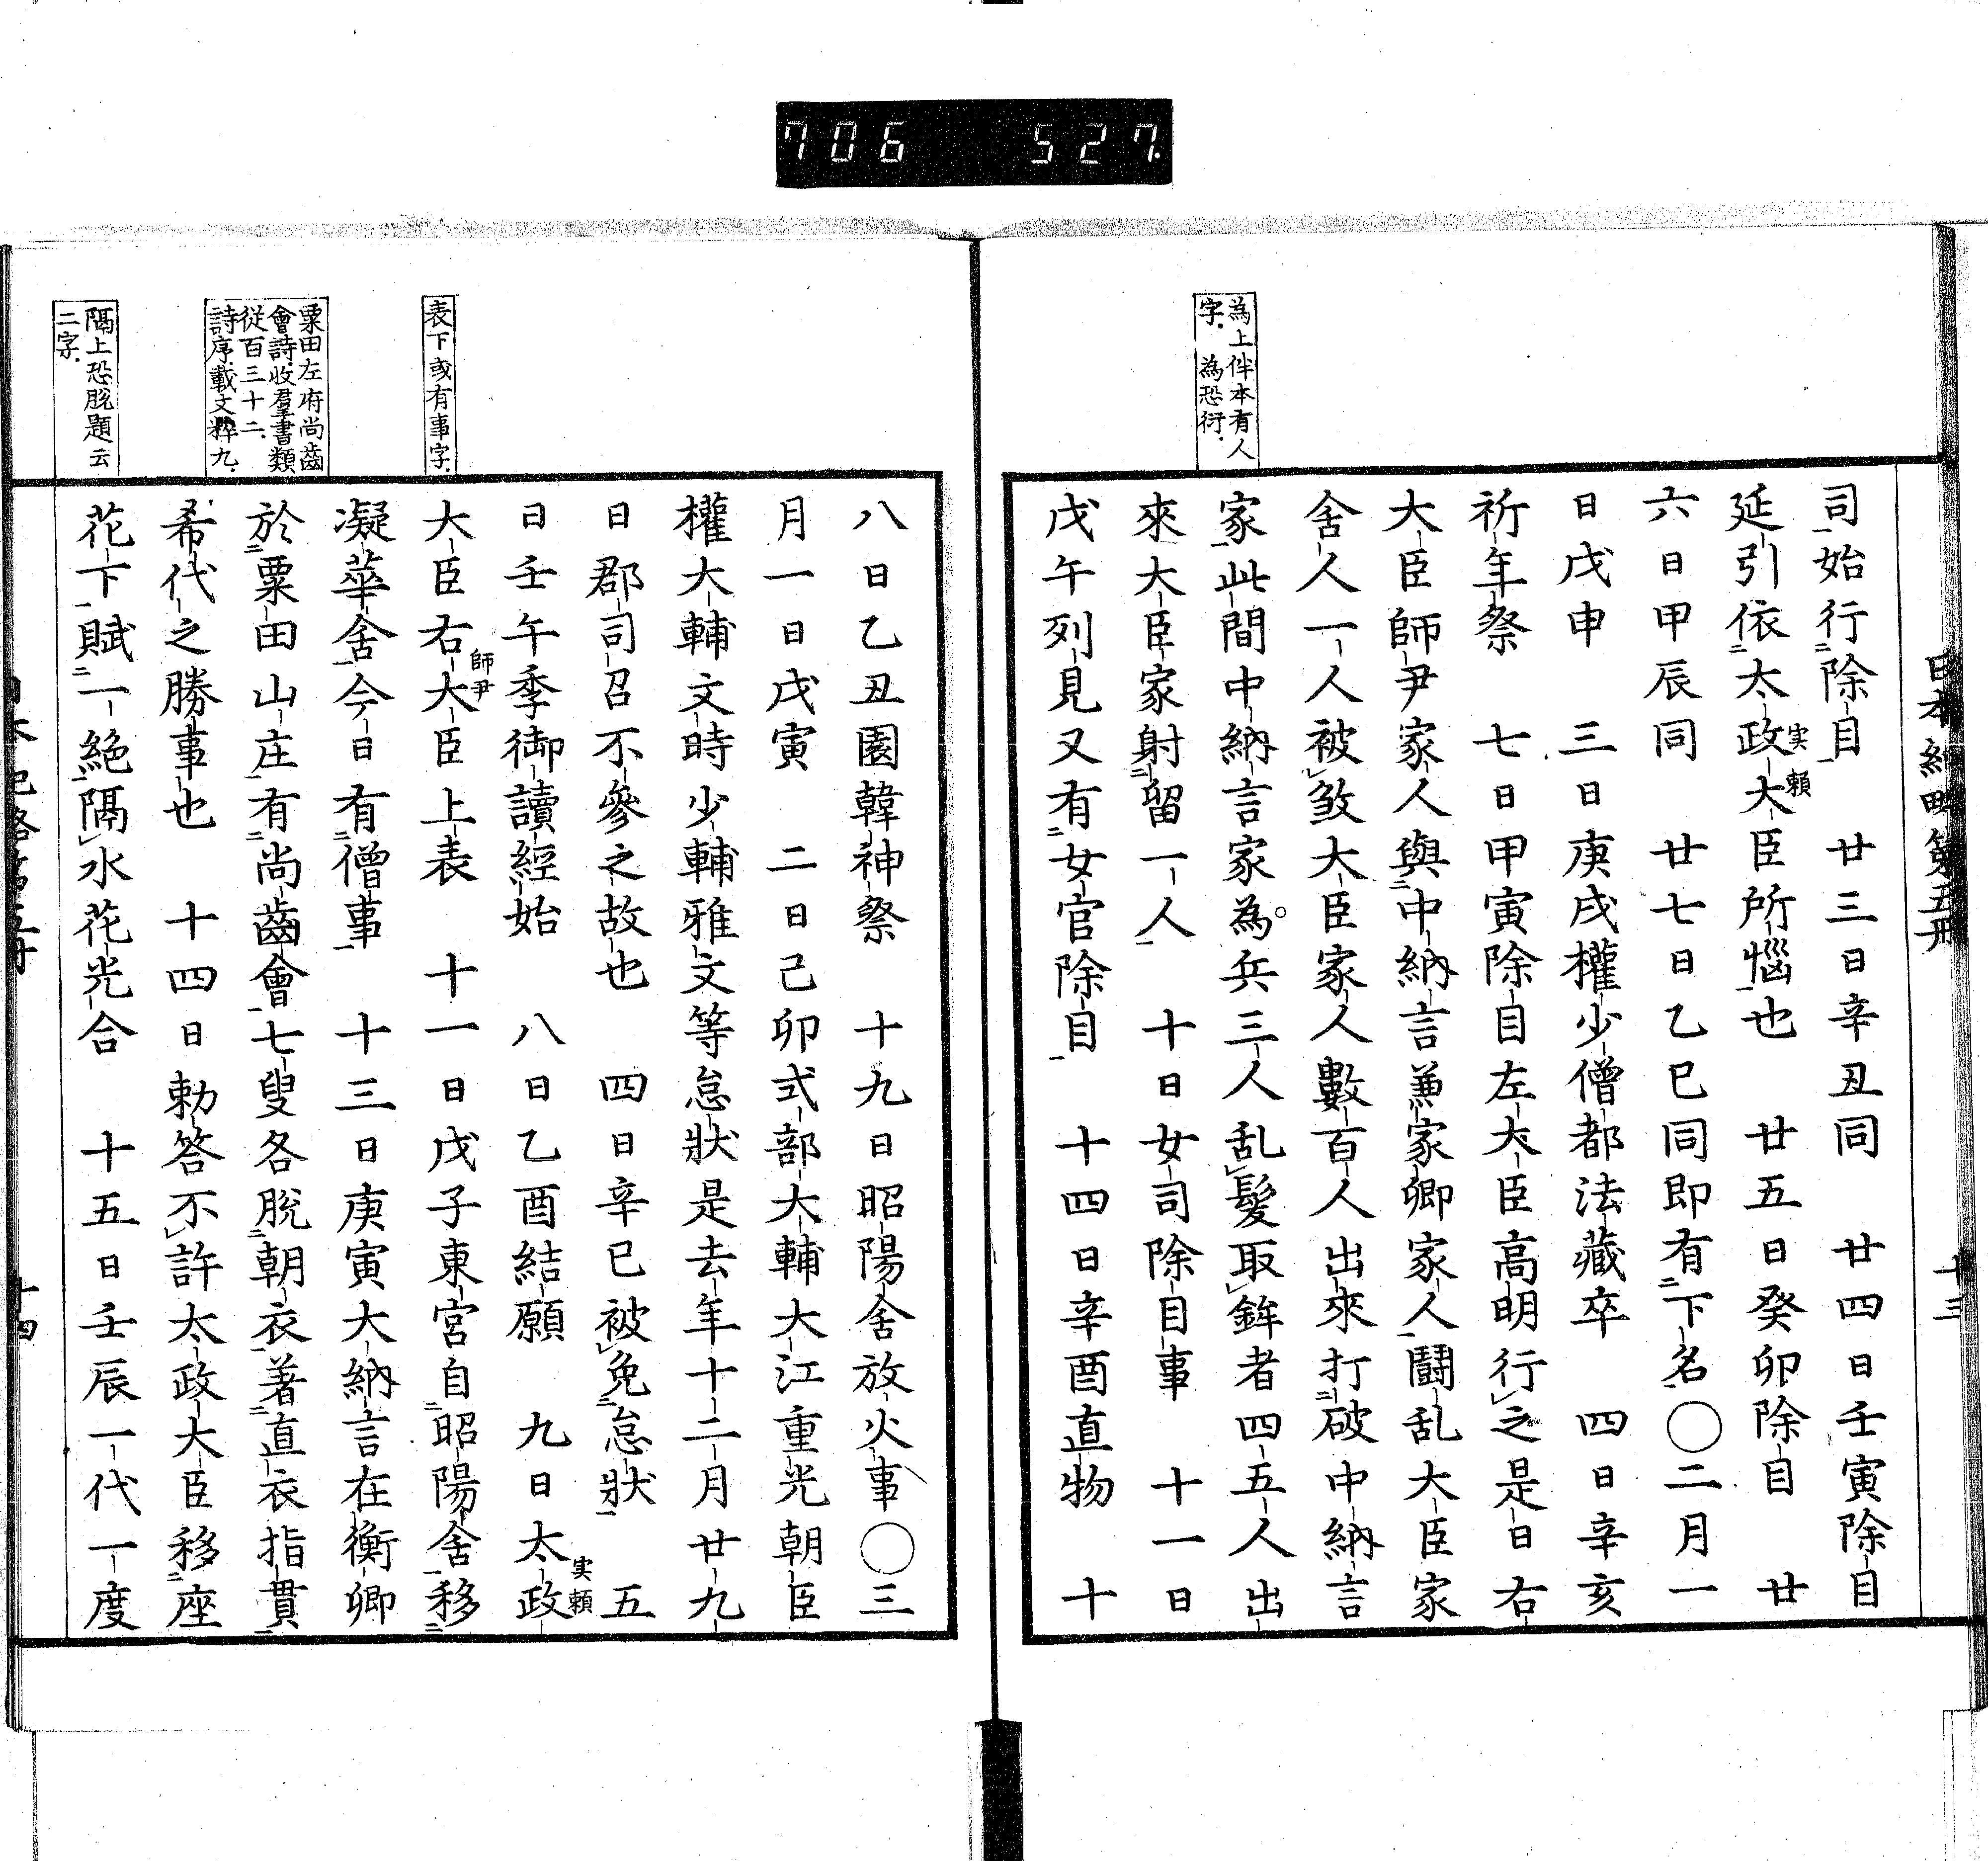 706 527.
日本紀略第五冊 十三
為上伴本有人
字。為恐衍。
司始行除目 廿三日辛丑同 廿四日壬寅除目
延引依太政大臣所惱也 廿五日癸卯除目 廿
実頼
六日甲辰同 廿七日乙巳同即有下名〇二月一
日戊申 三日庚戌權少僧都法藏卒 四日辛亥
祈年祭 七日甲寅除目左大臣高明行之是日右
大臣師尹家人與中納言兼家卿家人鬪乱大臣家
舍人一人被敓大臣家人數百人出來打破中納言
家此間中納言家為兵三人乱髮取鉾者四五人出
來大臣家射留一人 十日女司除目事 十一日
戊午列見又有女官除目 十四日辛酉直物 十
表下或有事字。
粟田左府尚齒
會詩。收羣書類
從百三十二。
詩序載文粹九。
隔上恐脫題云
二字。
八日乙丑園韓神祭 十九日昭陽舍放火事〇三
月一日戊寅 二日己卯式部大輔大江重光朝臣
權大輔文時少輔雅文等怠狀是去年十二月廿九
日郡司召不參之故也 四日辛巳被免怠狀 五
日壬午季御讀經始 八日乙酉結願 九日太政
実頼
大臣右大臣上表 十一日戊子東宮自昭陽舍移
師尹
凝華舍今日有僧事 十三日庚寅大納言在衡卿
於粟田山庄有尚齒會七叟各脫朝衣著直衣指貫
希代之勝事也 十四日勅答不許太政大臣移座
花下賦一絕隔水花光合 十五日壬辰一代一度
十四